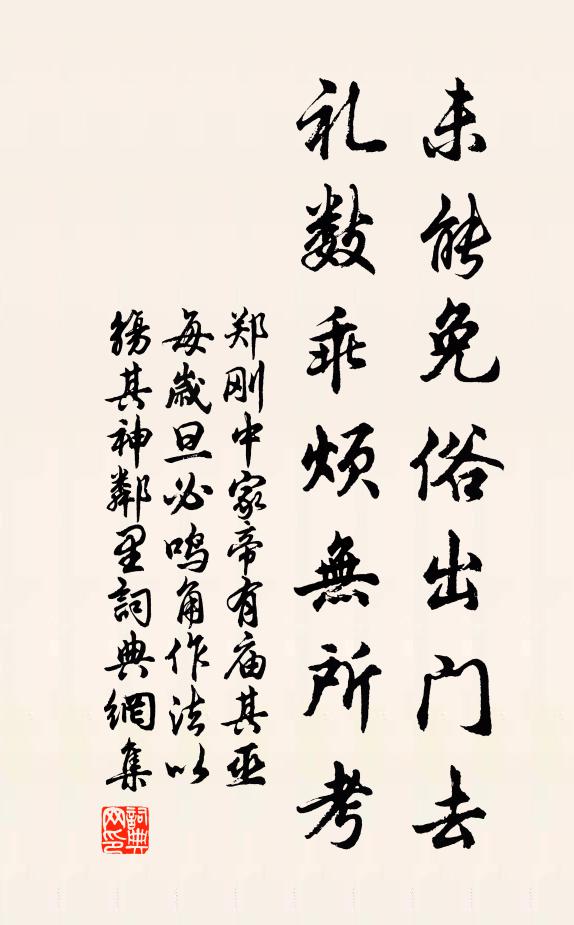 未能免俗出门去
礼数乖烦無所考
郑刚中家帝有庙其巫
每歲旦必鸣角作法以
禓其神鄰里詞典網集
詞典网印